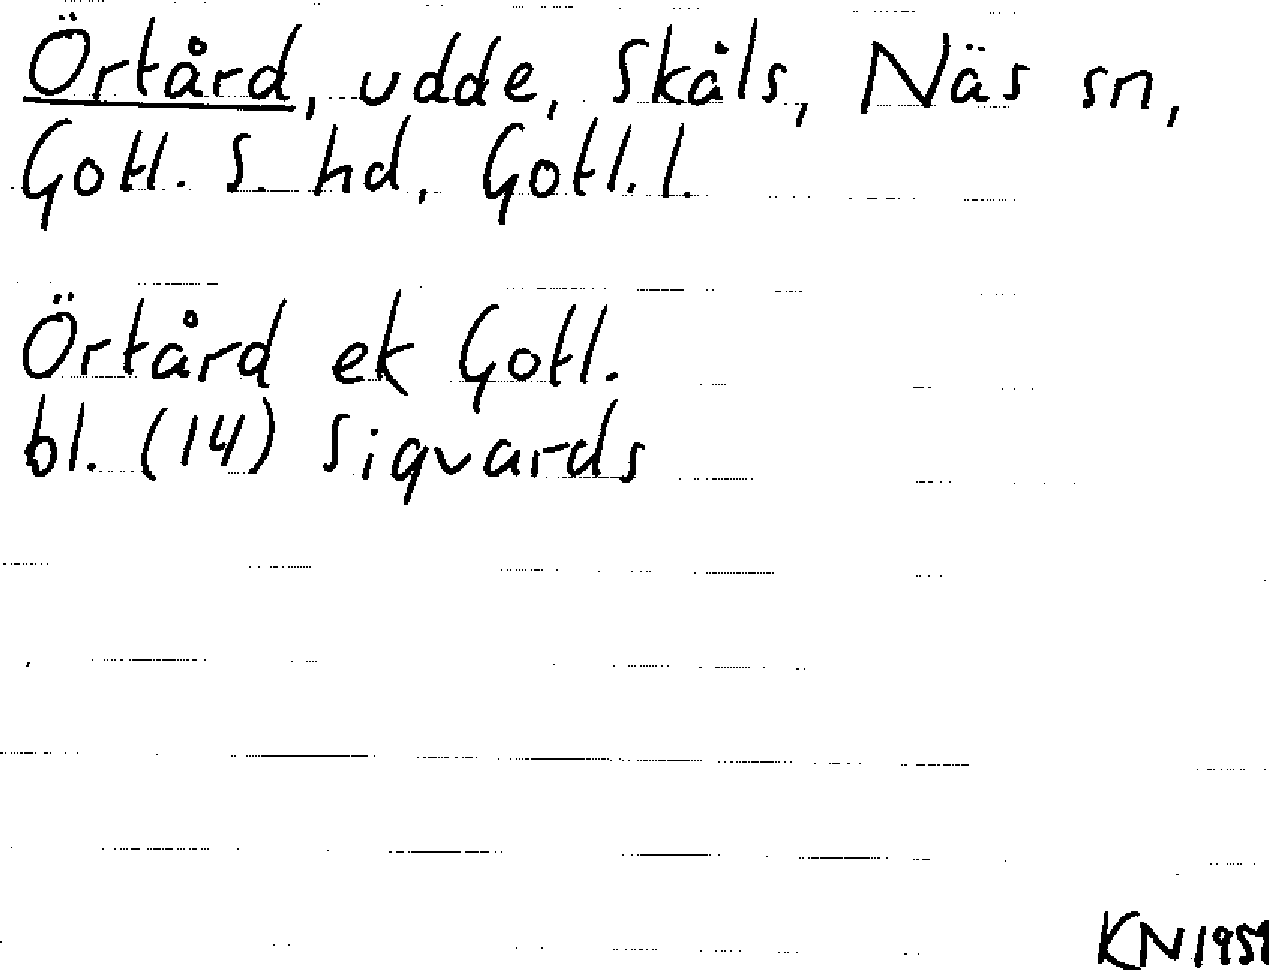 Örtård, udde, Skåls, Näs sn,
Gotl. S. hd, Gotl. l.
Örtård ek Gotl.
bl. (14) Sigvards
KN 1951